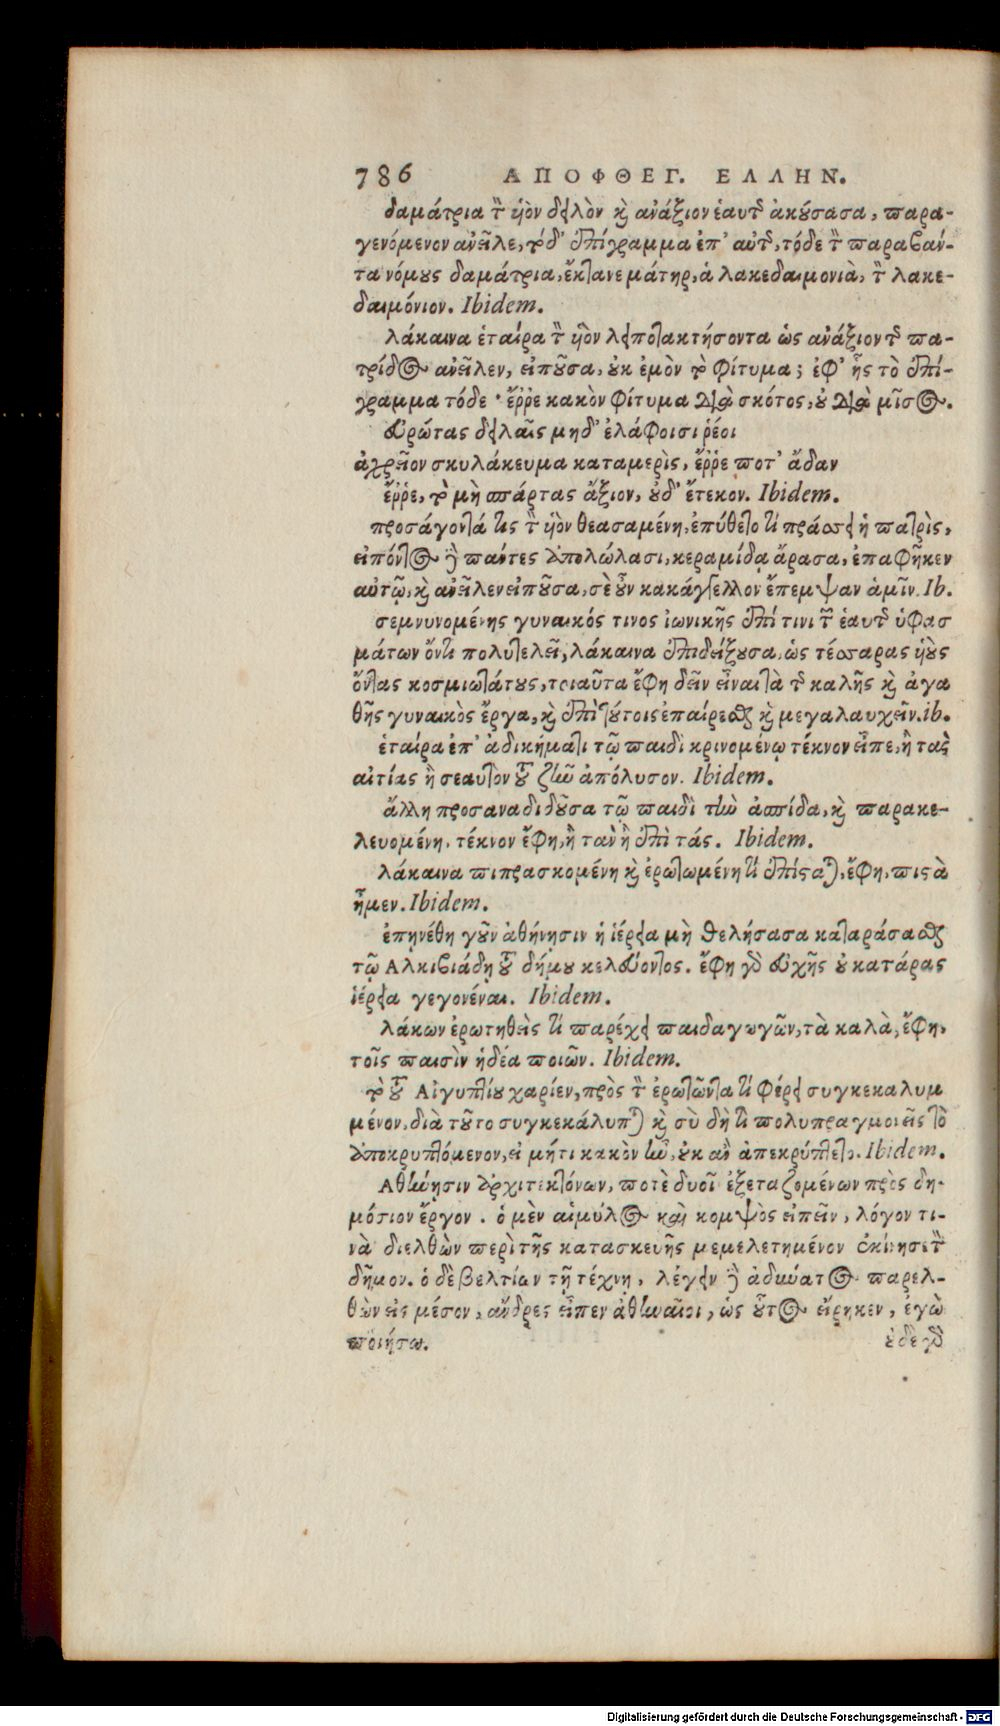 786 ΑΠΟΦΘΕΓ. ΕΛΛΗΝ.
δαμάτρια τὸν ὑιὸν δειλὸν καὶ ἀνάξιον ἑαυτῆς ἀκούσασα, παρα-
γενόμενον ἀνεῖλε, τὸ δ' ἐπίγραμμα ἐπ' αὐτῆς, τόδε τὸν παραβάν-
τα νόμους δαμάτρια, ἔκτανε μάτηρ, ἁ λακεδαιμονιὰ, τὸν λακε-
δαιμόνιον. Ibidem.
λάκαινα ἑταίρα τὸν ὑιὸν λειποτακτήσοντα ὡς ἀνάξιον τῆς πα-
τρίδος ἀνεῖλεν, εἰποῦσα, οὐκ ἐμὸν τὸ φίτυμα; ἐφ' ἧς τὸ ἐπί-
γραμμα τόδε · ἔῤῥε κακὸν φίτυμα διὰ σκότος, οὗ διὰ μῖσος.
ἐυρώτας δειλαῖς μηδ' ἐλάφοισι ῥέοι
ἀχρεῖον σκυλάκευμα καταμερὶς, ἔῤῥε ποτ' ἅδαν
ἔῤῥε, τὸ μὴ σπάρτας ἄξιον, οὐδ' ἔτεκον. Ibidem.
προσάγοντά τις τὸν ὑιὸν θεασαμένη, ἐπύθετο τί πράσσει ἡ πατρὶς,
εἰπόντος ὅτι πάντες ἀπολώλασι, κεραμίδα ἄρασα, ἐπαφῆκεν
αὐτῷ, καὶ ἀνεῖλεν εἰποῦσα, σὲ οὖν κακάγγελλον ἔπεμψαν ἁμῖν. Ib.
σεμνυνομένης γυναικός τινος ἰωνικῆς ἐπί τινι τῶν ἑαυτῆς ὑφασ
μάτων ὄντι πολυτελεῖ, λάκαινα ἐπιδείξουσα, ὡς τέσσαρας ὑιοὺς
ὄντας κοσμιωτάτους, τοιαῦτα ἔφη δεῖν εἶναι τὰ τῆς καλῆς καὶ ἀγα
θῆς γυναικὸς ἔργα, καὶ ἐπὶ τούτοις ἐπαίρεσθαι καὶ μεγαλαυχεῖν. ib.
ἑταίρα ἐπ' ἀδικήματι τῷ παιδὶ κρινομένῳ τέκνον εἶπε, ἢ τᾶς
αἰτίας ἢ σεαυτὸν τοῦ ζῆν ἀπόλυσον. Ibidem.
ἄλλη προσαναδιδοῦσα τῷ παιδὶ τὴν ἀσπίδα, καὶ παρακε-
λευομένη. τέκνον ἔφη, ἢ τὰν ἢ ἐπὶ τάς. Ibidem.
λάκαινα πιπρασκομένη καὶ ἐρωτωμένη τί ἐπίσταται, ἔφη, πιστὰ
ἦμεν. Ibidem.
ἐπηνέθη γοῦν ἀθήνησιν ἡ ἱέρεια μὴ θελήσασα καταράσασθαι
τῷ Αλκιβιάδῃ τοῦ δήμου κελεύοντος. ἔφη γὰρ εὐχῆς οὐ κατάρας
ἱέρεια γεγονέναι. Ibidem.
λάκων ἐρωτηθεὶς τί παρέχει παιδαγωγῶν, τὰ καλὰ, ἔφη,
τοῖς παισὶν ἡδέα ποιῶν. Ibidem.
τὸ τοῦ Αἰγυπτίου χαρίεν, πρὸς τὸν ἐρωτῶντα τί φέρει συγκεκαλυμ
μένον, διὰ τοῦτο συγκεκάλυπται καὶ σὺ δὴ τί πολυπραγμονεῖς τὸ
ἀποκρυπτόμενον, εἰ μήτι κακὸν ἦν, οὐκ ἂν ἀπεκρύπτετο. Ibidem.
Αθήνησιν ἀρχιτεκτόνων, ποτὲ δυοῖ ἐξεταζομένων πρὸς δη-
μόσιον ἔργον. ὁ μὲν αἱμύλος καὶ κομψὸς εἰπεῖν, λόγον τι-
νὰ διελθὼν περὶ τῆς κατασκευῆς μεμελετημένον ἐκίνησε τὸν
δῆμον. ὁ δὲ βελτίων τῇ τέχνῃ, λέγειν δὲ ἀδύνατος παρελ-
θὼν εἰς μέσον, ἄνδρες εἶπεν ἀθηναῖοι, ὡς οὗτος εἴρηκεν, ἐγὼ
ποιήσω.
οὐδὲ γὰρ
Digitalisierung gefördert durch die Deutsche Forschungsgemeinschaft - DFG